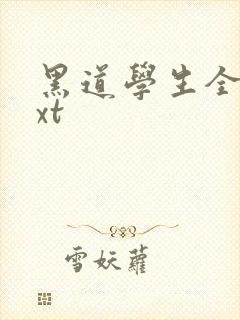 黑道學生全
xt
雪妖蘿